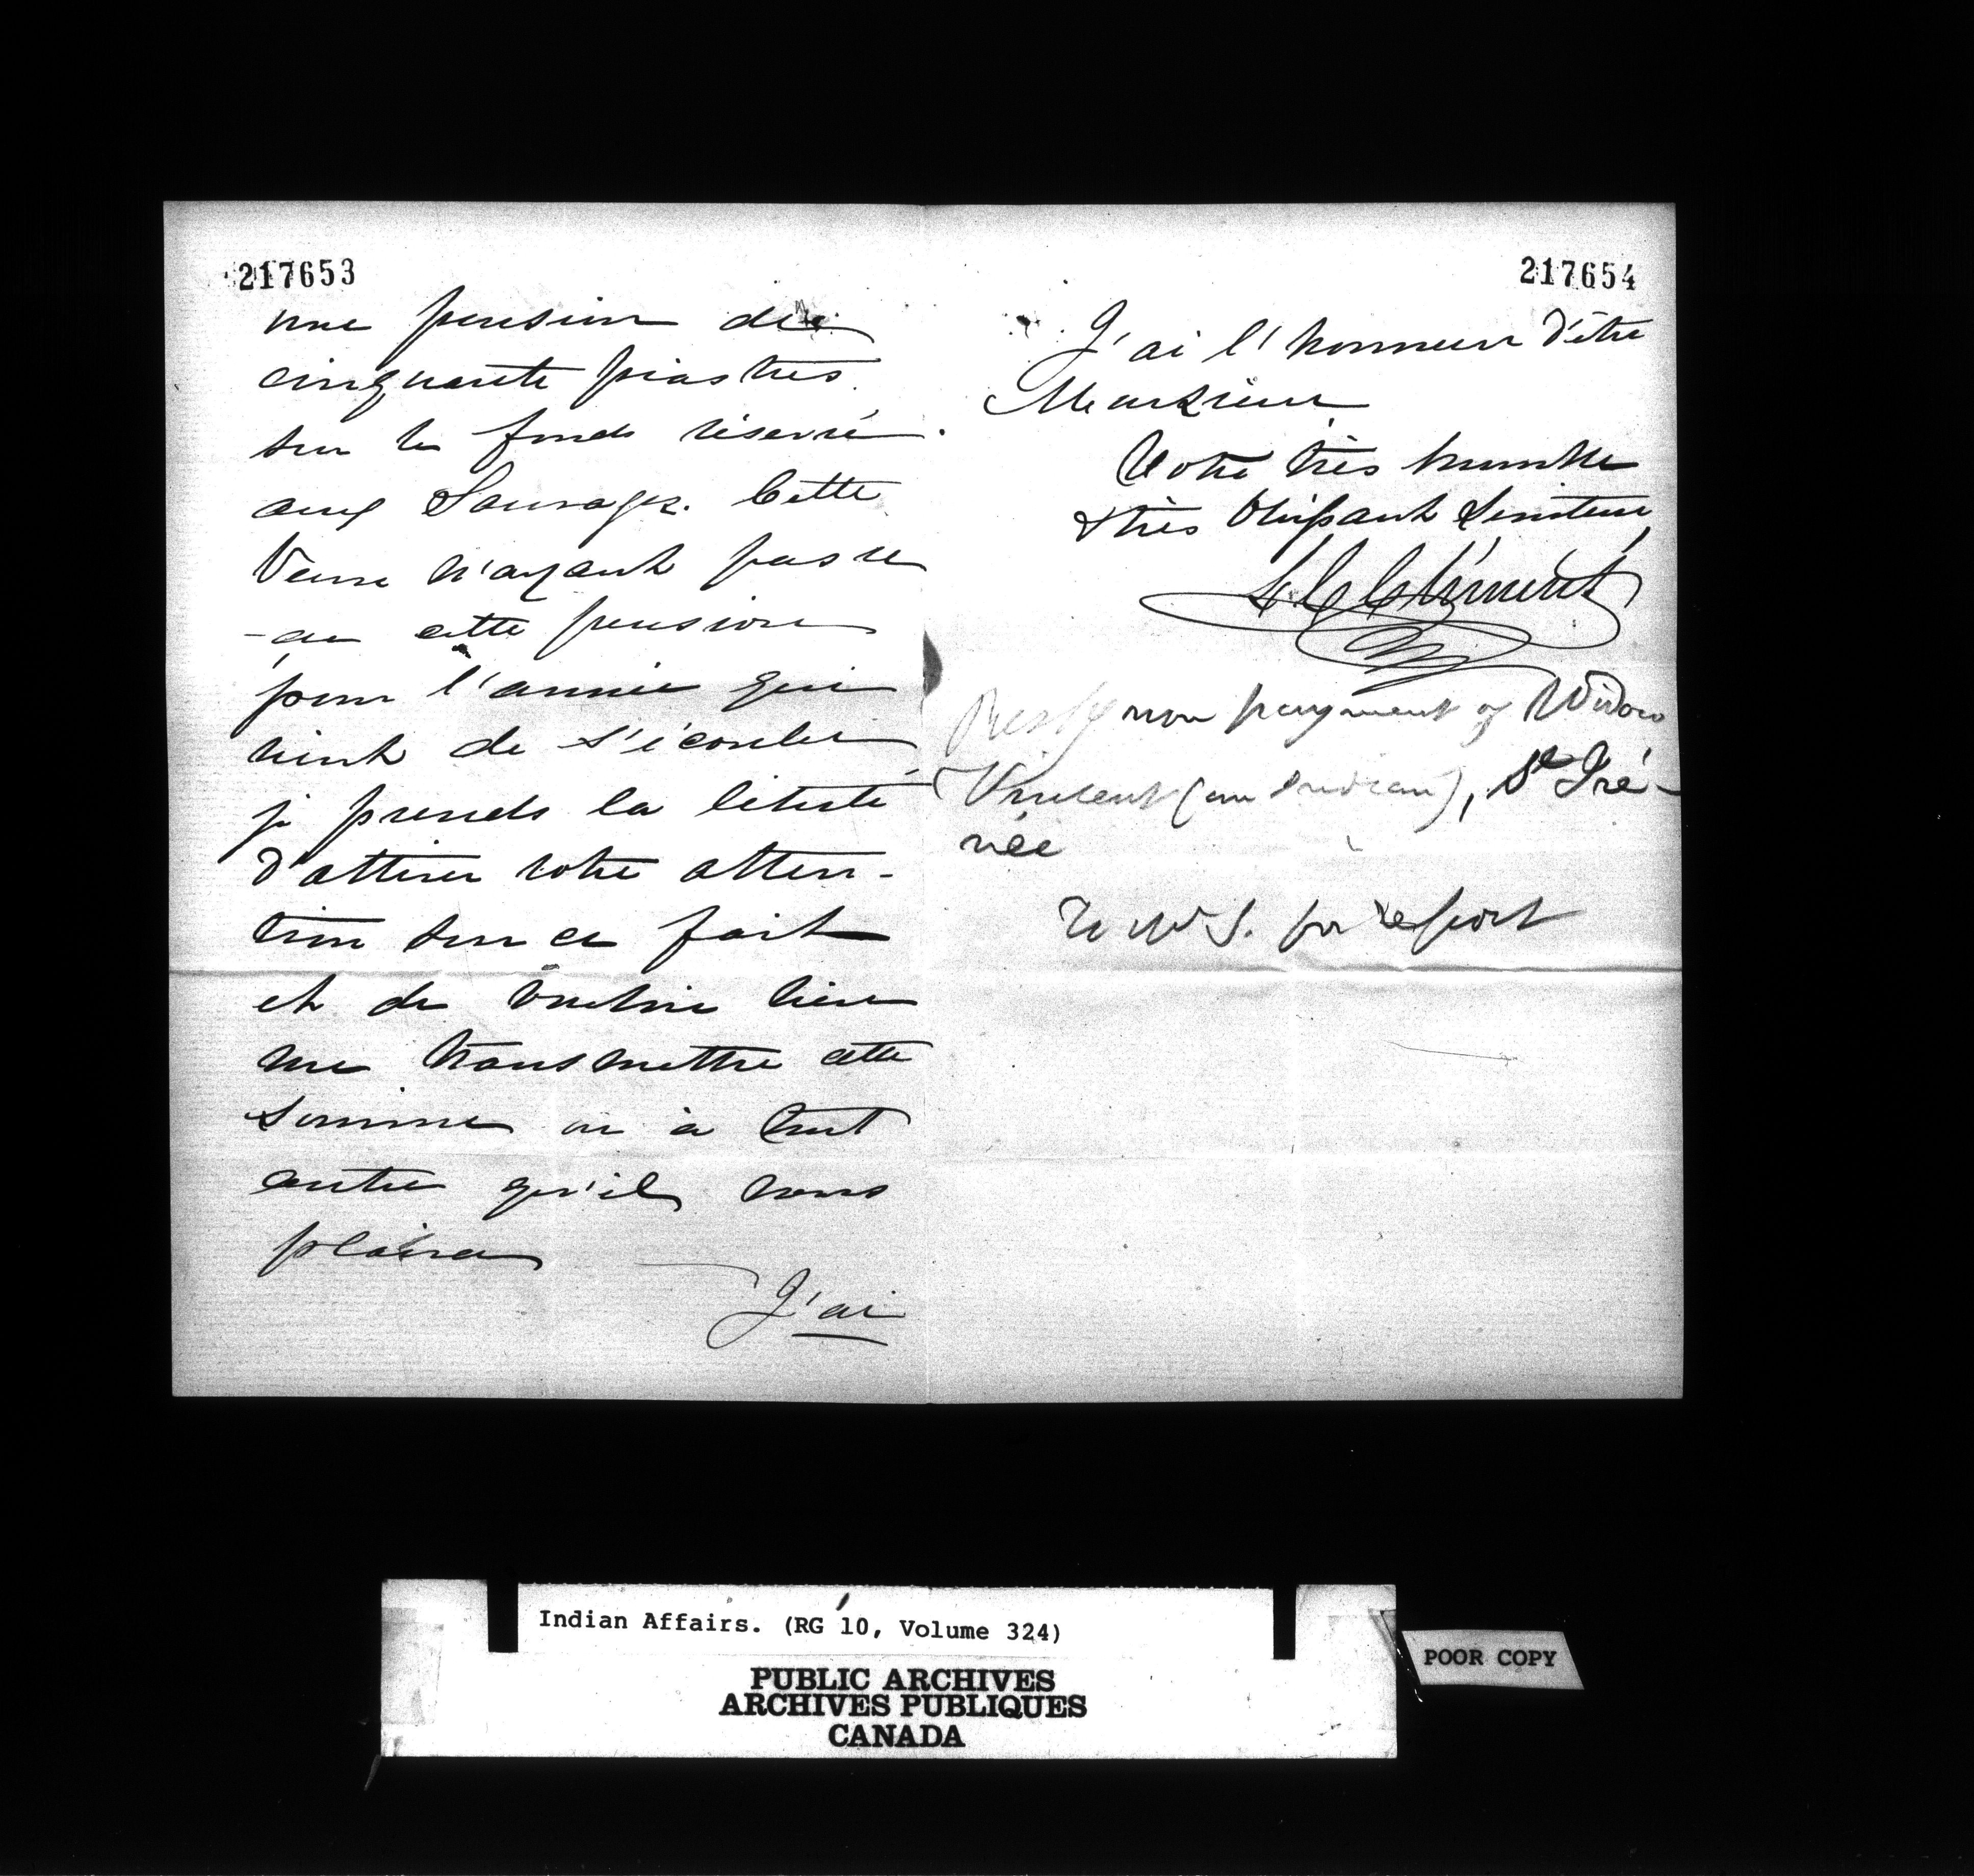 217653
une pension de
cinquante piastres
sur le fonds réservé
aux Sauvages. Cette
Veuve n'ayant pas re
-çu cette pension
pour l'année qui
vient de s'écouler
je prends la liberté
d'attirer votre atten-
tion sur ce fait
et de vouloir bien
me transmettre cette
somme ou à tout
autre qu'il vous
plaira
J'ai
217654
J'ai l'honneur d'être
Monsieur
Votre très humble
& très Obéissant Serviteur
Clément
non payment of Widow
Vincent (an Indian), St Iré-
née
for report
Indian Affairs. (RG 10, Volume 324)
PUBLIC ARCHIVES
ARCHIVES PUBLIQUES
CANADA
POOR COPY